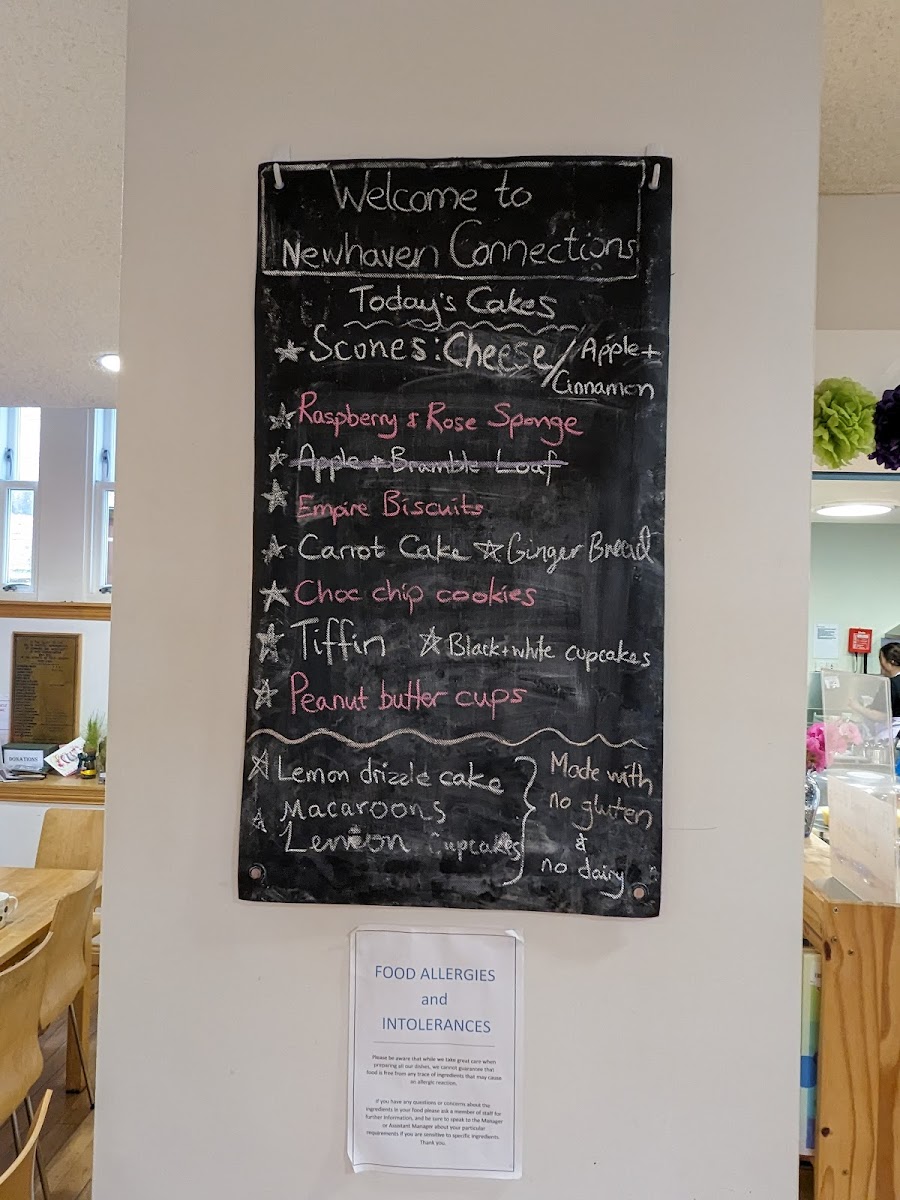 Welcome to
Newhaven Connections
Today's Cakes
Scones: Cheese / Apple +
Cinnamon
Raspberry & Rose Sponge
Apple + Bramble Loaf
Empire Biscuits
Carrot Cake ☆ Ginger Bread
Choc chip cookies
Tiffin ☆ Black + white cupcakes
Peanut butter cups
Lemon drizzle cake
Macaroons
Lemon Cupcakes
Made with
no gluten
&
no dairy
FOOD ALLERGIES
and
INTOLERANCES
Please be aware that while we take great care when
preparing all our dishes, we cannot guarantee that
food is free from any trace of ingredients that may cause
an allergic reaction.
If you have any questions or concerns about the
ingredients in your food please ask a member of staff for
further information, and be sure to speak to the Manager
or Assistant Manager about your particular
requirements if you are sensitive to specific ingredients.
Thank you.
DONATIONS